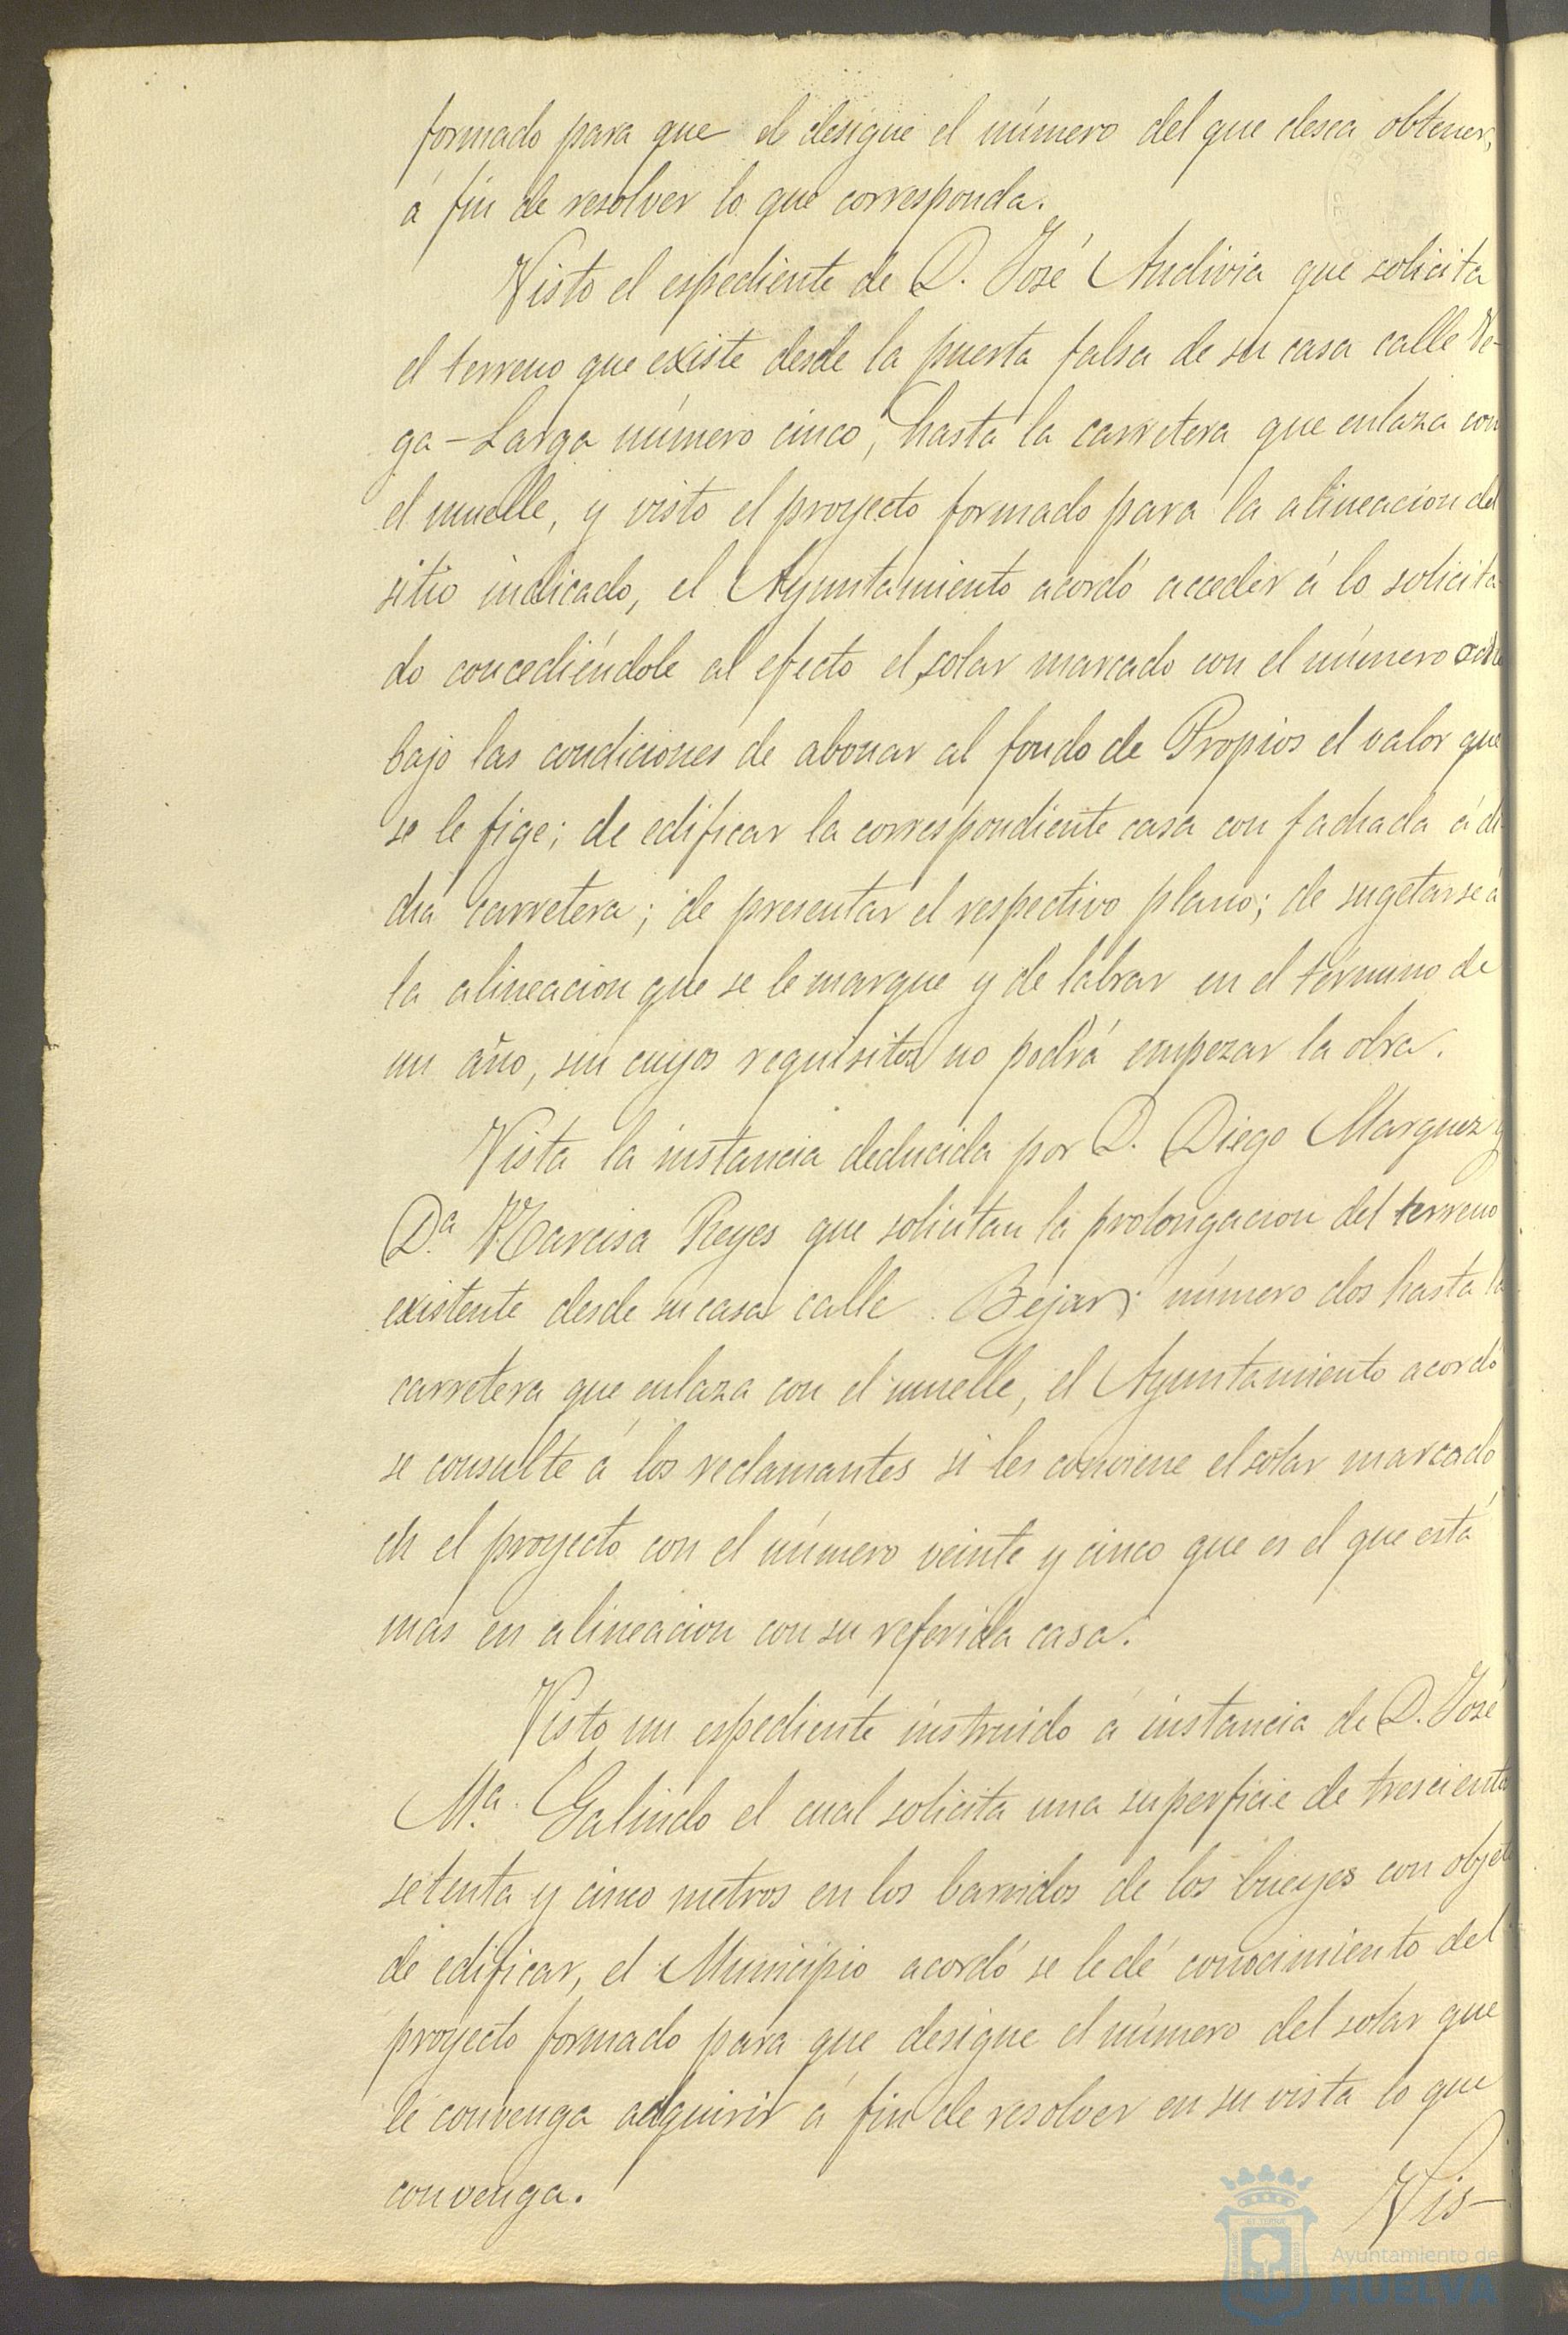 formado para que el desigue el número del que desea obtener,
á fin de resolver lo que corresponda.
Visto el espediente de D. José Andivia que solicita
el terreno que existe desde la puerta falsa de su casa calle Ve-
ga-Larga número cinco, hasta la carretera que enlaza con
el muelle, y visto el proyecto formado para la alineacion del
sitio indicado, el Ayuntamiento acordó acceder á lo solicita-
do concediéndole al efecto el solar marcado con el número
bajo las condiciones de abonar al fondo de Propios el valor que
se le fige; de edificar la correspondiente casa con fachada á di-
cha carretera; de presentar el respectivo plano; de sugetarse á
la alineacion que se le marque y de labrar en el término de
un año, sin cuyos requisitos no podrá empezar la obra.
Vista la instancia deducida por D. Diego Marquez y
D.ª Narcisa Reyes que solicitan la prolongacion del terreno
existente desde su casa calle Bejar; número dos hasta la
carretera que enlaza con el muelle, el Ayuntamiento acordó
se consulte á los reclamantes si les conviene el solar marcado
en el proyecto con el número veinte y cinco que es el que está
mas en alineacion con su referida casa.
Visto un espediente instruido á instancia de D. José
M.ª Galindo el cual solicita una superficie de trescientos
setenta y cinco metros en los barridos de los bueyes con objeto
de edificar, el Municipio acordó se le dé conocimiento del
proyecto formado para que desigue el número del solar que
le convenga adquirir á fin de resolver en su vista lo que
convenga.
Vis-
Ayuntamiento de
HUELVA